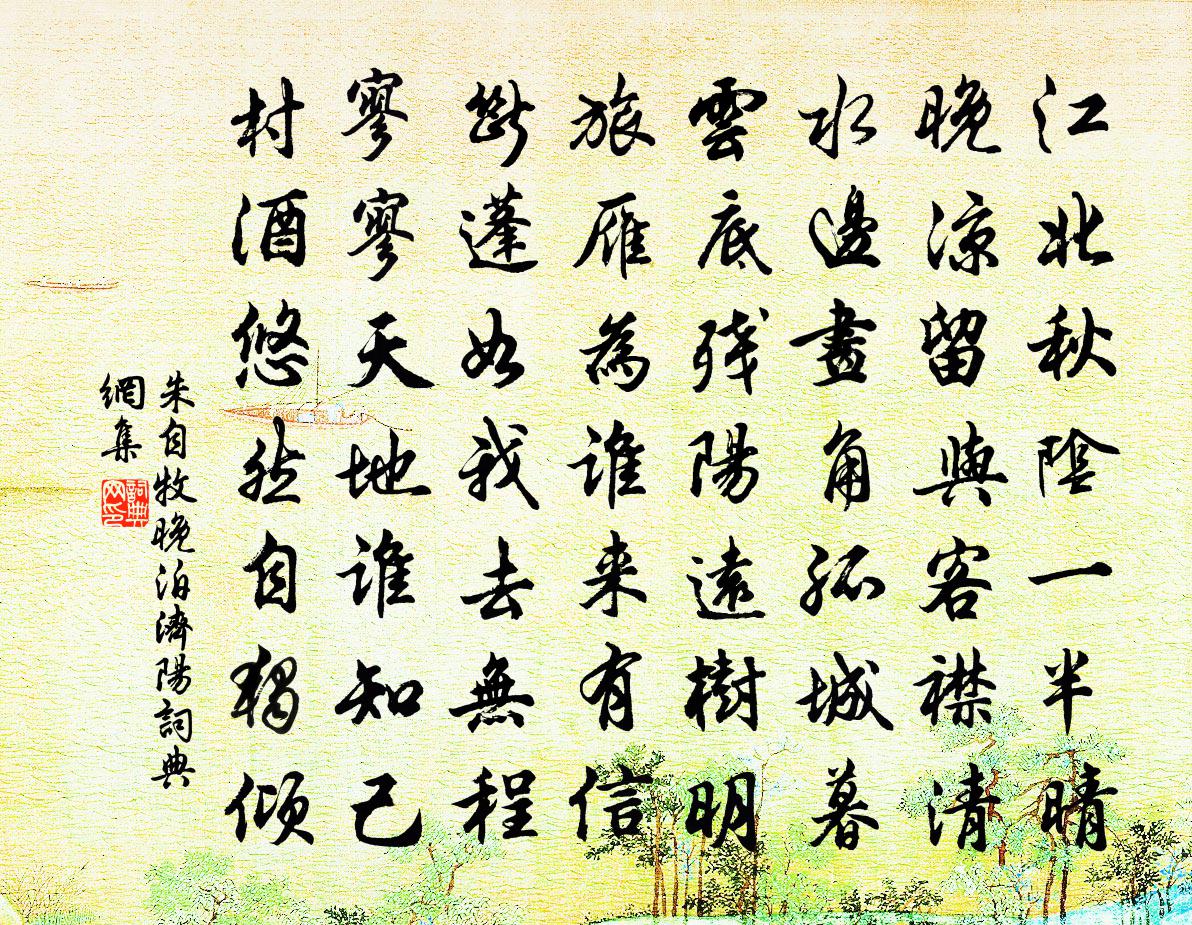 江北秋陰一半晴
晚涼留與客襟清
水邊畫角孤城暮
雲底殘陽遠樹明
旅雁為誰来有信
斷蓬如我去無程
寥寥天地誰知己
村酒悠然自獨傾
朱自牧晚泊濟陽詞典
網集
詞典
网印